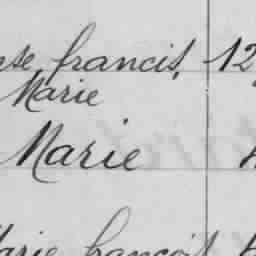 francis, 12
Marie
Marie
Marie françois